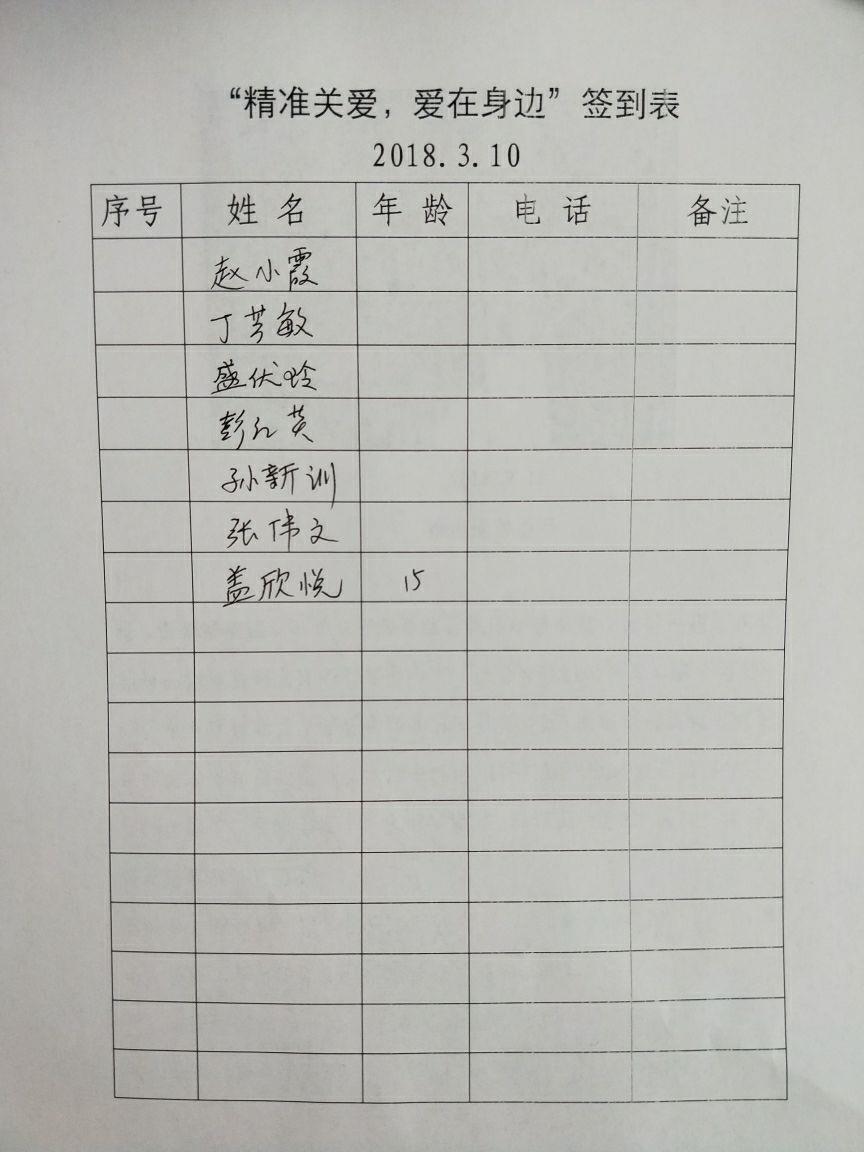 “精准关爱，爱在身边”签到表
2018.3.10
序号 姓名 年龄 电话 备注
赵小霞
丁芳敏
盛伏玲
彭红英
孙新训
张伟文
盖欣悦 15